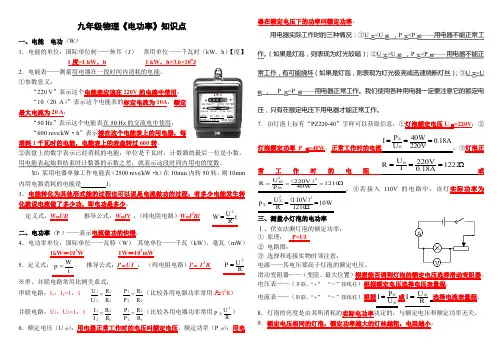 九年级物理《电功率》知识点
一、电能 电功（W）
1．电能的单位：国际单位制——焦耳（J） 常用单位——千瓦时（kW．h）【度】
1 度=1 kW．h 1 kW．h=3.6×10⁶J
2．电能表——测量用电器在一段时间内消耗的电能。
①参数意义：
“220 V”表示这个电能表应该在 220V 的电路中使用；
“10（20 A）”表示这个电能表的标定电流为 10A，额定最大电流为 20A；
“50 Hz”表示这个电能表在 50 Hz 的交流电中使用；
“600 revs/kW·h”表示接在这个电能表上的用电器，每消耗 1 千瓦时的电能，电能表上的表盘转过 600 转。
②表盘上的数字表示已经消耗的电能，单位是千瓦时，计数器的最后一位是小数。用电能表起始和结束时计数器的示数之差，就表示这段时间内用电的度数。
如：某用电器单独工作电能表（2500 revs/kW·h）在 10min 内转 50 转，则 10min 内用电器消耗的电能是 J。
3．电能转化为其他形式能的过程也可以说是电流做功的过程，有多少电能发生转化就说电流做了多少功，即电功是多少。
定义式：W=UIt 推导公式：W=Pt （纯电阻电路）W=I²Rt W=U²/R t
二、电功率（P）——表示电流做功的快慢。
4．电功率单位：国际单位——瓦特（W） 其他单位——千瓦（kW），毫瓦（mW）
1kW=10³W 1W=10³mW
5．定义式：p=W/t 推导公式：P=UI ；（纯电阻电路）P= I²R P=U²/R
※串、并联电路常用比例关系式：
串联电路：I₁：I₂=1：1 U₁/U₂=R₁/R₂ P₁/P₂=R₁/R₂ （比较各用电器功率常用 P=I²R）
并联电路：U₁：U₂=1：1 I₁/I₂=R₂/R₁ P₁/P₂=R₂/R₁ （比较各用电器功率常用 P=U²/R）
6．额定电压（U 额）：用电器正常工作时的电压叫额定电压。额定功率（P 额）：用电
器在额定电压下的功率叫额定功率。
用电器实际工作时的三种情况：①U 实<U 额 ，P 实<P 额——用电器不能正常工作。（如果是灯泡，则表现为灯光较暗）；②U 实>U 额 ，P 实>P 额——用电器不能正常工作，有可能烧坏（如果是灯泡，则表现为灯光极亮或迅速烧断灯丝）；③U 实=U 额 ，P 实=P 额——用电器正常工作。我们使用各种用电器一定要注意它的额定电压，只有在额定电压下用电器才能正常工作。
7．由灯泡上标有“PZ220-40”字样可以获取信息：①灯泡额定电压 U 额=220V，②灯泡额定功率 P 额=40W，正常工作时的电流 I=P额/U额=40W/220V=0.18A ③灯正常工作时的电阻 R=U额/I=220V/0.18A=1222Ω 或 R=U额²/P额=(220V)²/40W=1210Ω ④若接入 110V 的电路中，该灯实际功率为 P=U²/R=(110V)²/1210Ω=10W
三、测量小灯泡的电功率
1．伏安法测灯泡的额定功率：
① 原理： P=UI
② 电路图：
③ 选择和连接实物时须注意：
电源——其电压要高于灯泡的额定电压。
滑动变阻器——（变阻，最大位置）根据能否调到灯泡的额定电压选择滑动变阻器。
电压表——（并联，“+”“－”接线柱）根据额定电压选择电压表量程。
电流表——（串联，“+”“－”接线柱）根据 I=P额/U额 或 I=U额/R 选择电流表量程。
8．灯泡的亮度是由其所消耗的实际电功率决定的，与额定电压和额定功率无关。
9．额定电压相同的灯泡，额定功率越大的灯丝越粗，电阻越小。